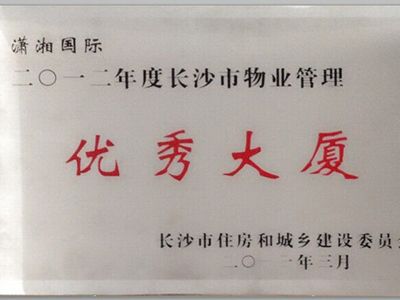 潇湘国际
二〇一二年度长沙市物业管理
优秀大厦
长沙市住房和城乡建设委员会
二〇一一年三月